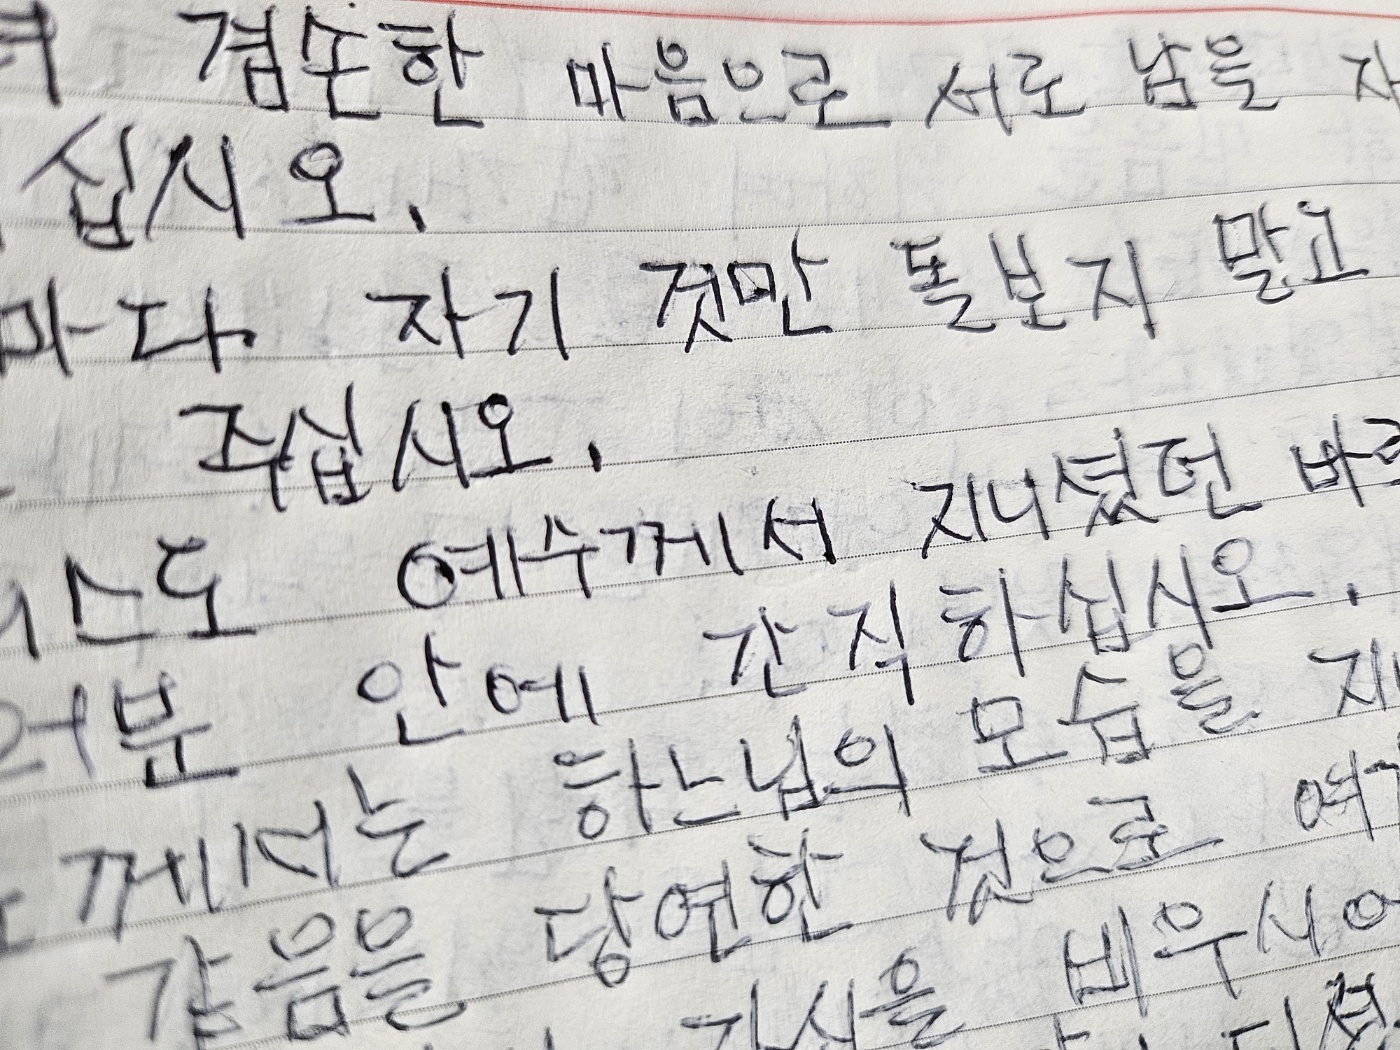 겸손한 마음으로 서로 남을
십시오.
마다 자기 것만 돌보지 말고
주십시오.
스도 예수께서 지니셨던 바로
러분 안에 간직하십시오.
께서는 하느님의 모습을 지
같음을 당연한 것으로 여기
자신을 비우시어